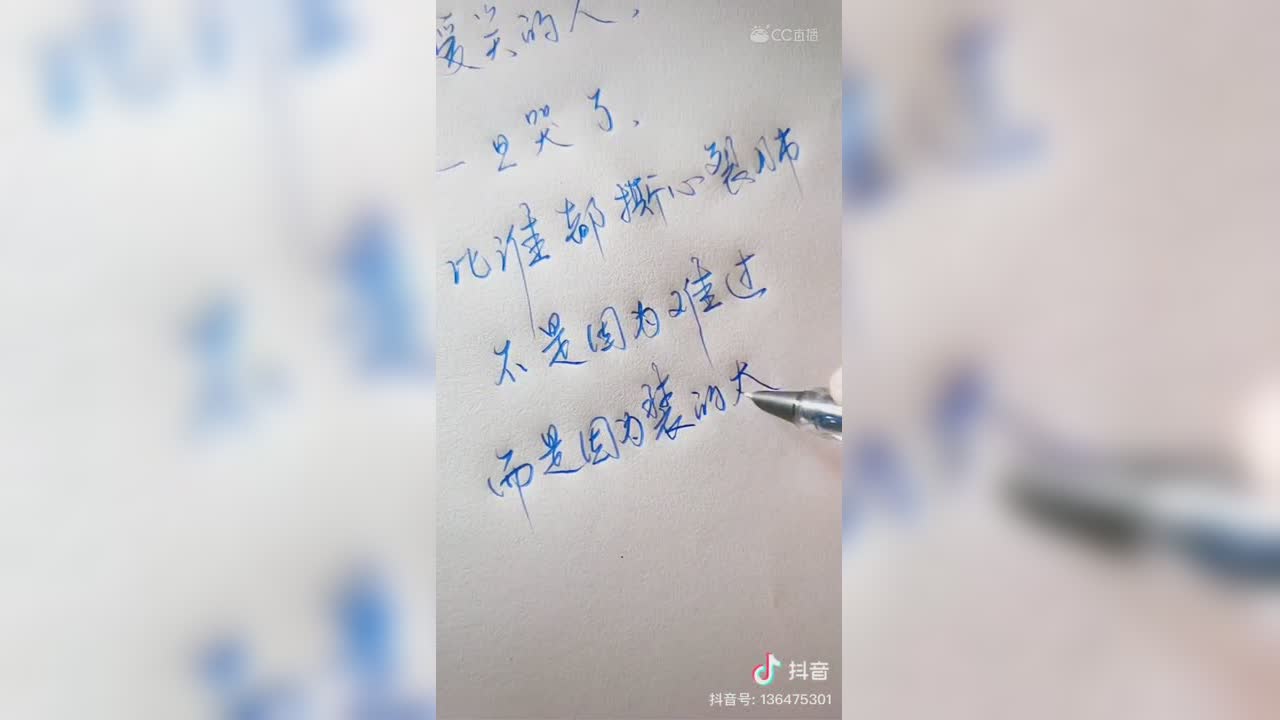 爱笑的人，
一旦哭了，
比谁都撕心裂肺
不是因为难过
而是因为装的太
CC直播
抖音
抖音号: 136475301